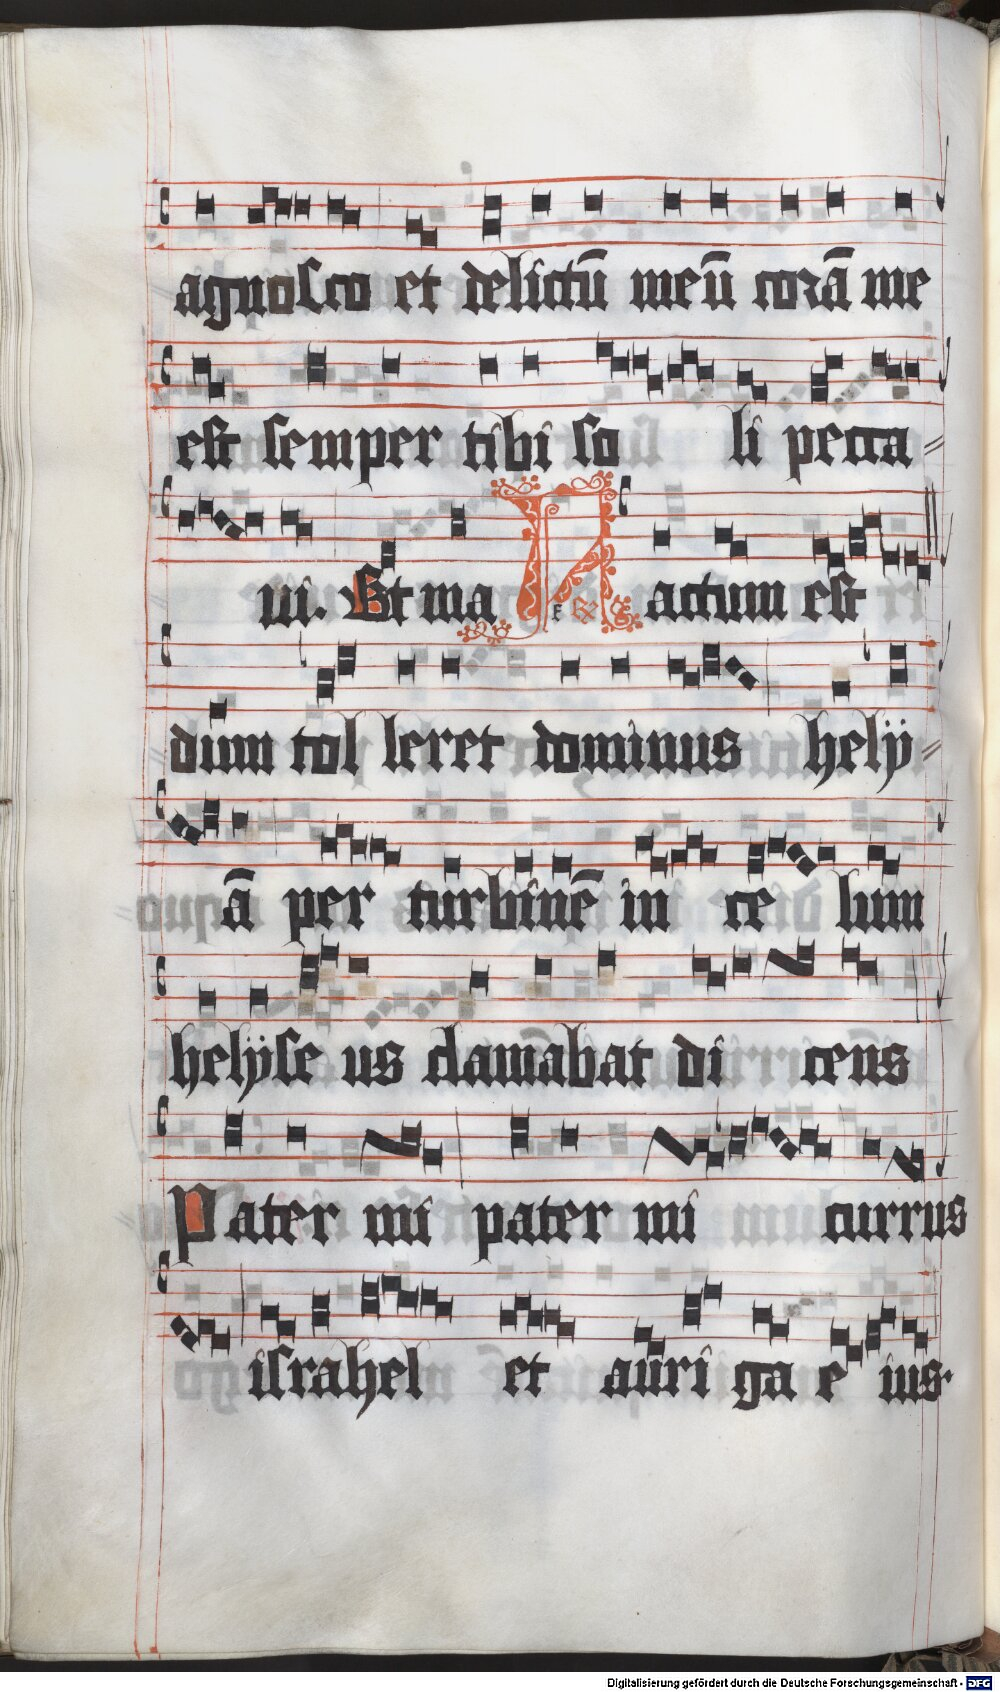 agnosco et delictū meū corā me
est semper tibi so li pecca〃
ui. Et ma F actum est
dum tol leret dominus helÿ〃
ā per turbinē in ce lum
helÿse us clamabat di cens
Pater mi pater mi currus
israhel et auri ga e ius.
Digitalisierung gefördert durch die Deutsche Forschungsgemeinschaft - DFG